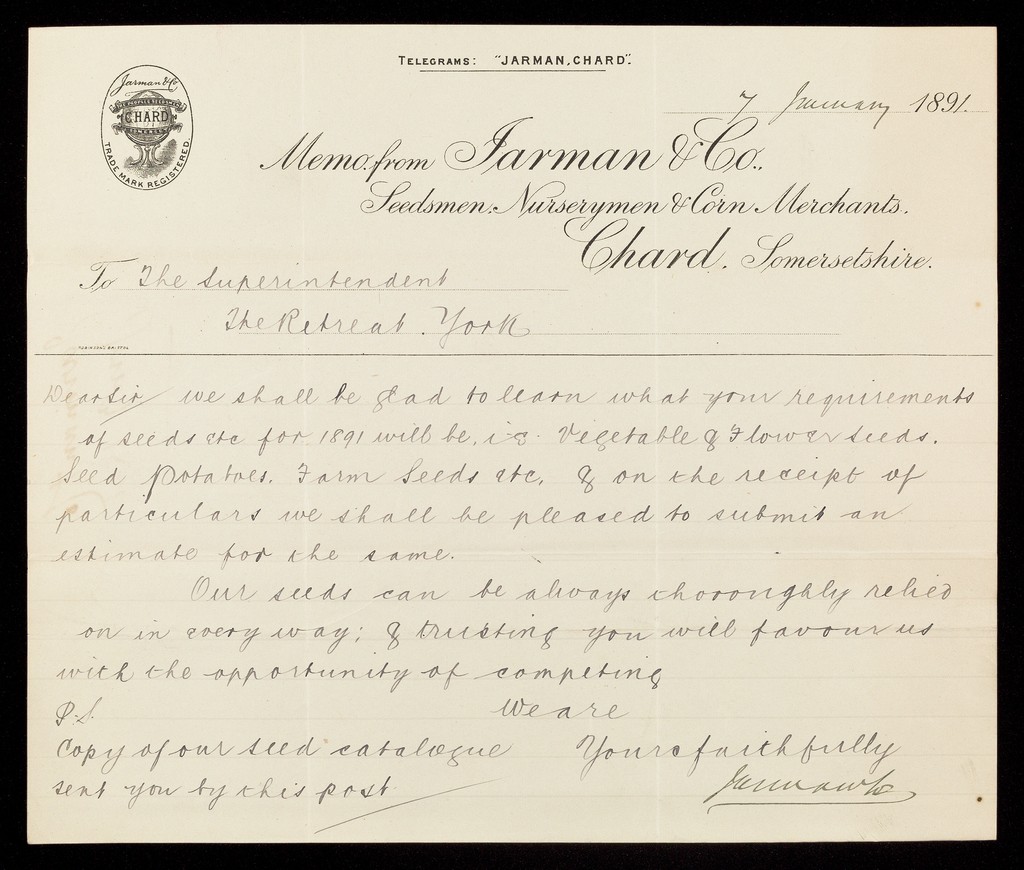 TELEGRAMS: "JARMAN, CHARD".
Jarman & Co
THE PEOPLES SEEDSMEN
CHARD
SOMERSET
TRADE MARK REGISTERED.
7 January 1891.
Memo. from Jarman & Co.,
Seedsmen. Nurserymen & Corn Merchants.
Chard. Somersetshire.
To The Superintendent
The Retreat. York
Dear Sir we shall be glad to learn what your requirements
of seeds etc for 1891 will be, i.e. Vegetable & Flower seeds.
Seed Potatoes. Farm Seeds etc. & on the receipt of
particulars we shall be pleased to submit an
estimate for the same.
Our seeds can be always thoroughly relied
on in every way; & trusting you will favour us
with the opportunity of competing
We are
P.S.
Copy of our seed catalogue
sent you by this post
Yours faithfully
Jarman & Co